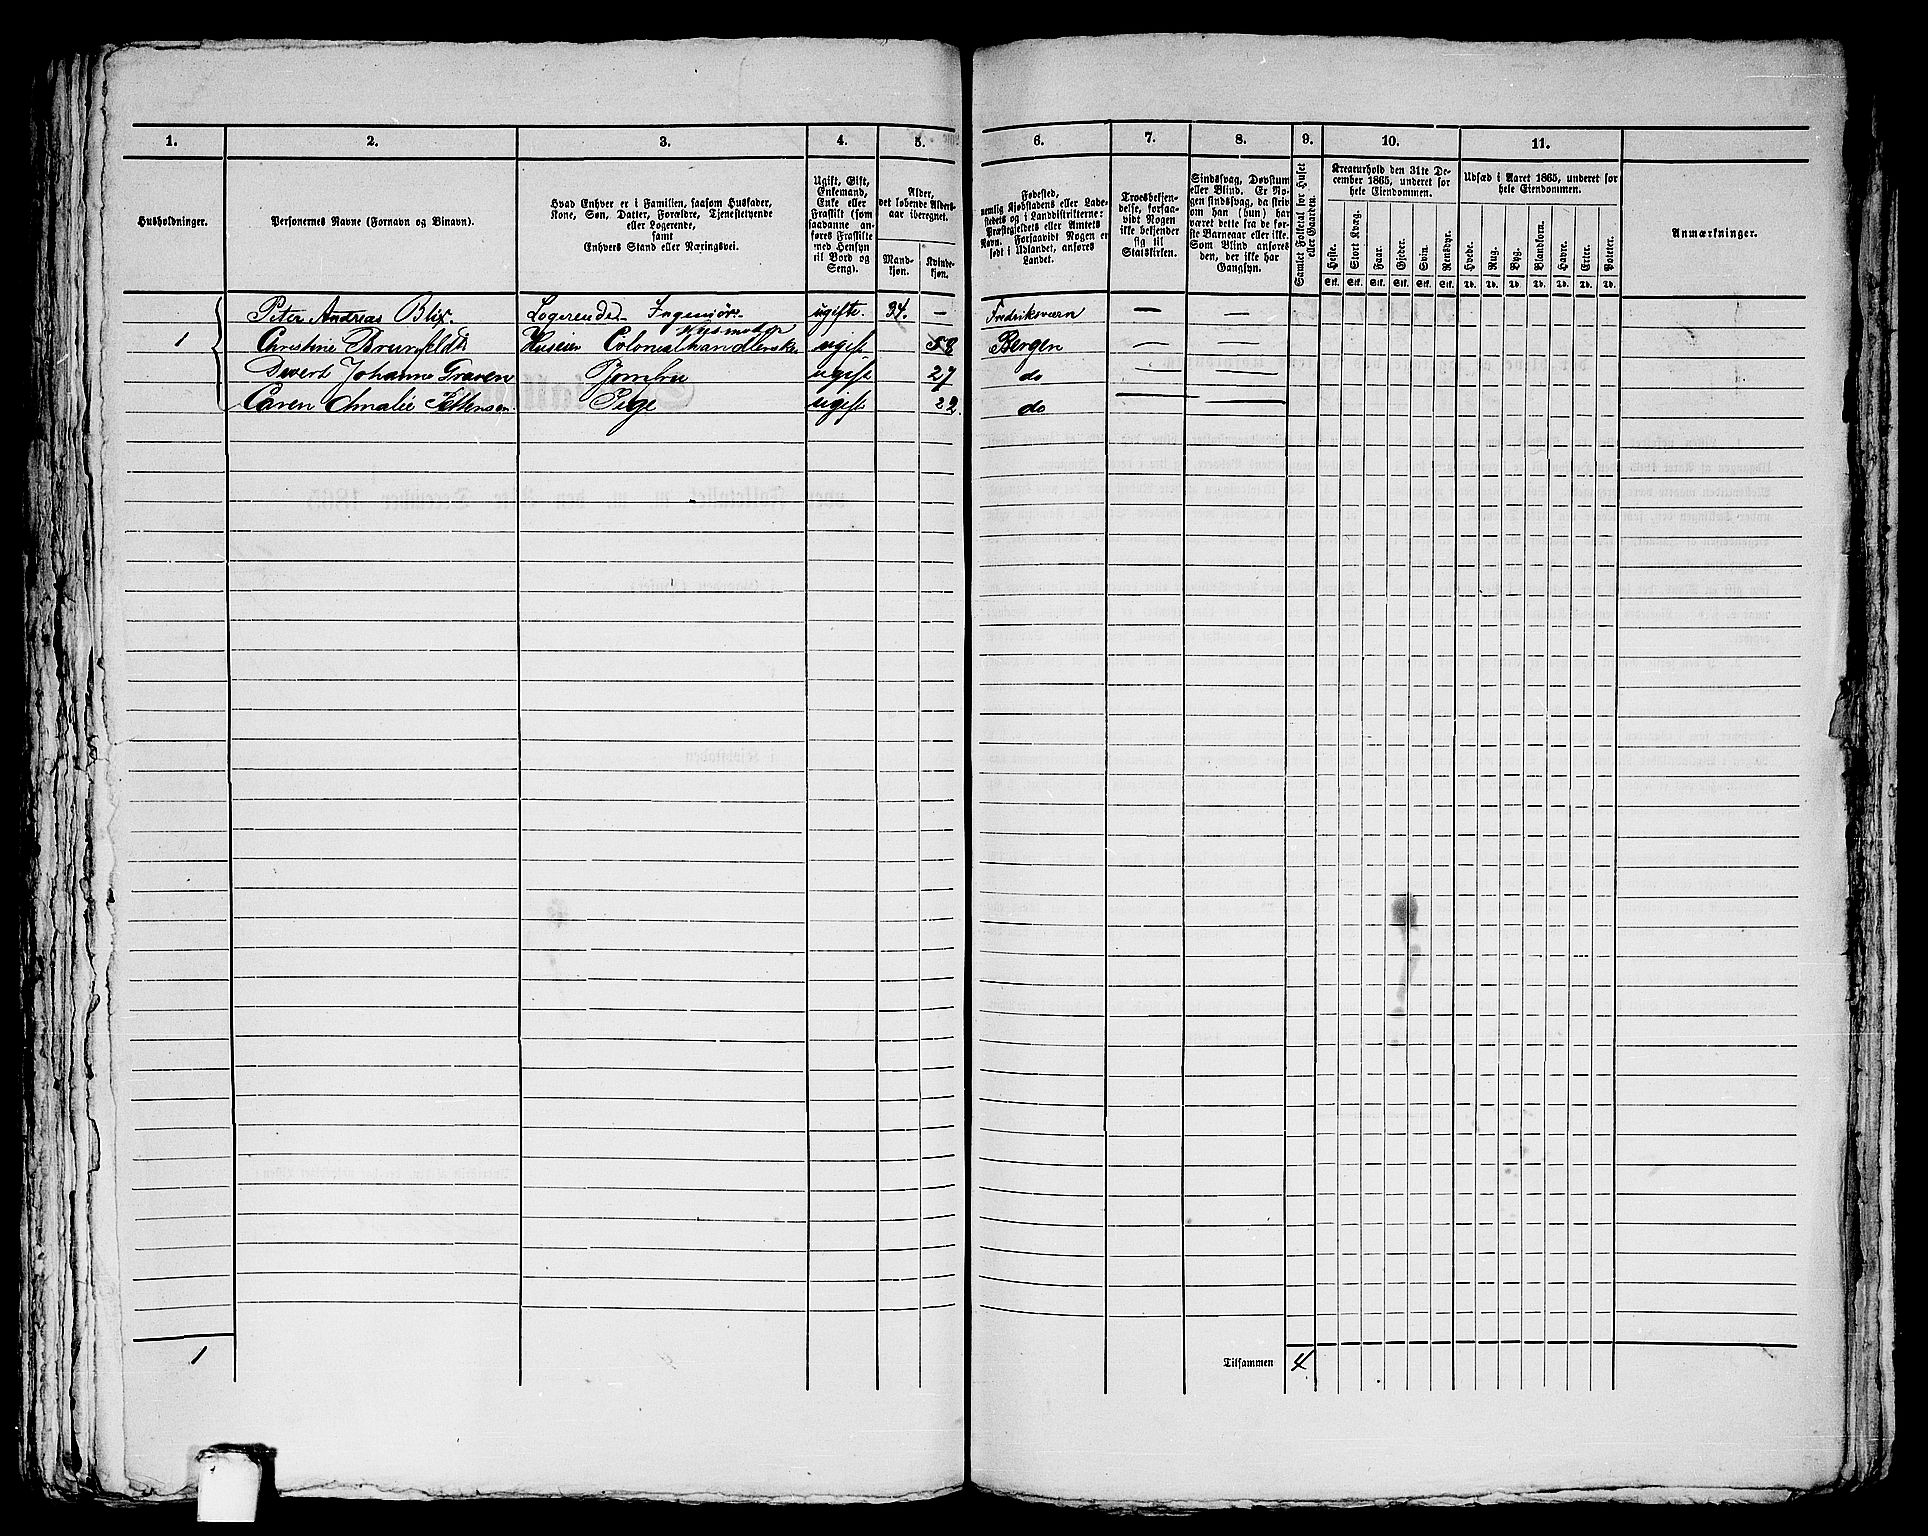 1. 2. 3. 4. 5. 6. 7. 8. 9. 10. 11.
Husholdninger.
Personernes Navne (Fornavn og Binavn).
Hvad Enhver er i Familien, saasom Husfader,
Kone, Søn, Datter, Forældre, Tjenestetyende
eller Logerende,
samt
Enhvers Stand eller Næringsvei.
Ugift, Gift,
Enkemand,
Enke eller
Fraskilt (som
saadanne an-
føres Fraskilte
med Hensyn
til Bord og
Seng).
Alder,
det løbende Alders-
aar iberegnet.
Mand-
kjøn.
Kvinde-
kjøn.
Fødested,
nemlig Kjøbstadens eller Lade-
stedets og i Landdistrikterne:
Præstegjeldets eller Amtets
Navn. Forsaavidt Nogen er
født i Udlandet, anføres
Landet.
Troesbekjen-
delse, forsaa-
vidt Nogen
ikke bekjender
sig til
Statskirken.
Sindssvag, Døvstum
eller Blind. Er No-
gen sindssvag, da skriv
om han (hun) har
været dette fra de før-
ste Barneaar eller ikke.
Som Blind anføres
den, der ikke har
Gangsyn.
Samlet Folketal for Huset
eller Gaarden.
Kreaturhold den 31te De-
cember 1865, underet for
hele Eiendommen.
Heste. Stort Kvæg. Faar. Gjeder. Svin. Rensdyr.
Stk. Stk. Stk. Stk. Stk. Stk.
Udsæd i Aaret 1865, underet for
hele Eiendommen.
Hvede. Rug. Byg. Blandkorn. Havre. Erter. Poteter.
Td. Td. Td. Td. Td. Td. Td.
Anmærkninger.
Peter Andreas Blix. Logerende Ingeniør ugifte. 34. — Fredriksværn — —
Husmoder
1 Christine Brunfeldt Huseier Colonialhandlerske ugift 58 Bergen — —
Divert Johanne Graven Jomfru ugift 27 do — —
Caren Amalie Pettersen. Pige ugift 22. do — —
1
Tilsammen 4